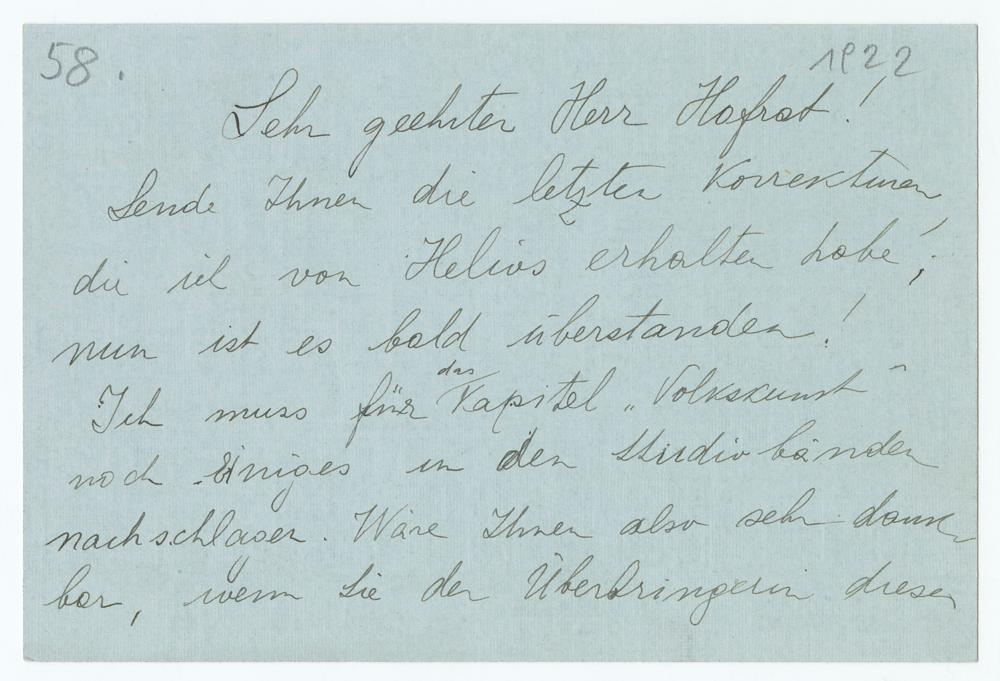 58.
1922
Sehr geehrter Herr Hofrat!
Sende Ihnen die letzten Korrekturen,
die ich von Helios erhalten habe;
nun ist es bald überstanden!
Ich muss für das Kapitel „Volkskunst“
noch Einiges in den Studiobänden
nachschlagen. Wäre Ihnen also sehr dank-
bar, wenn Sie der Überbringerin dieser